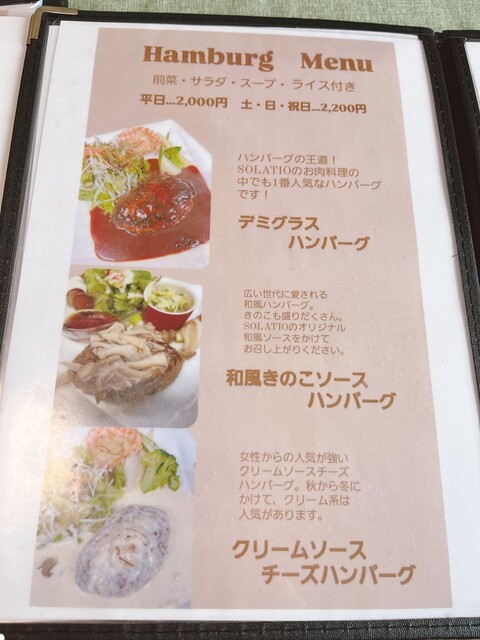 Hamburg Menu
前菜・サラダ・スープ・ライス付き
平日...2,000円 土・日・祝日...2,200円
ハンバーグの王道！
SOLATIOのお肉料理の
中でも1番人気なハンバーグ
です！
デミグラス
ハンバーグ
広い世代に愛される
和風ハンバーグ。
きのこも盛りだくさん。
SOLATIOのオリジナル
和風ソースをかけて
お召し上がりください。
和風きのこソース
ハンバーグ
女性からの人気が強い
クリームソースチーズ
ハンバーグ。秋から冬に
かけて、クリーム系は
人気があります。
クリームソース
チーズハンバーグ